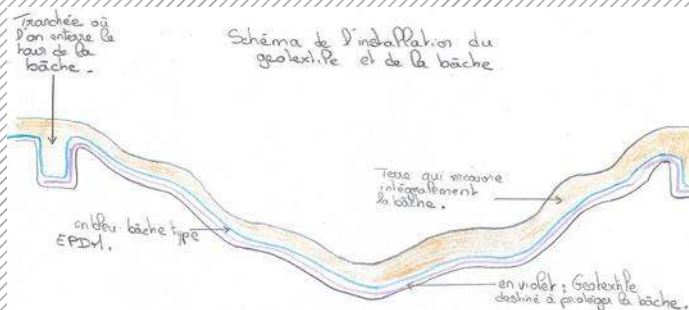 Tranchée où
l'on enterre le
tour de la
bâche.
Schéma de l'installation du
geotextile et de la bâche
Terre qui recouvre
intégralement
la bâche.
en bleu bâche type
EPDM.
en violet : Geotextile
destiné à protéger la bâche.